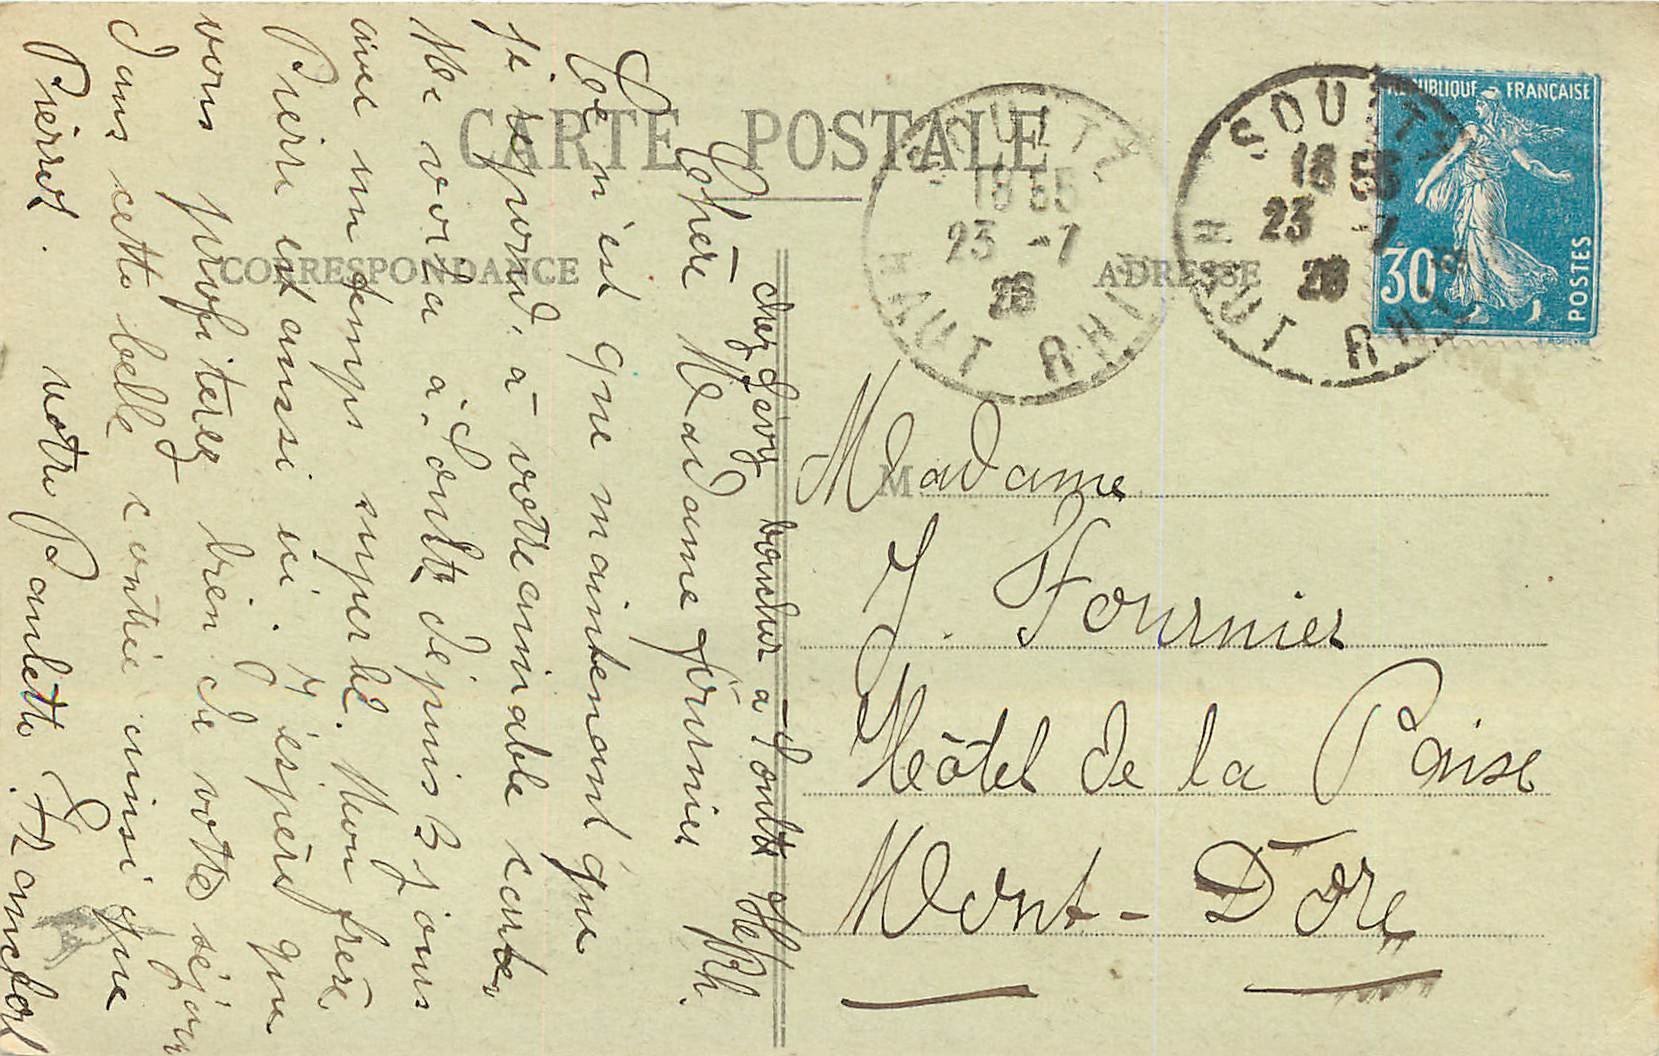 CARTE POSTALE
CORRESPONDANCE
ADRESSE
SOULTZ
18 55
23 -7
26
HAUT RHIN
SOULTZ
18 55
23 -7
26
HAUT RHIN
RÉPUBLIQUE FRANÇAISE
30
POSTES
M
Madame
J. Fournier
Hôtel de la Paise
Mont-Dore
chez Lévy boucher à Soultz Ht Rh.
Chère Madame Fournier
Ce n'est que maintenant que
je répond à votre aimable carte,
Me voila à Soultz dépuis 3 jours
avec un temps superbe. Mon frère
Pierre est aussi ici. J'éspère que
vous profiterez bien de votre séjour
dans cette belle contrée ainsi que
Pierrot. votre Paulette Francfort